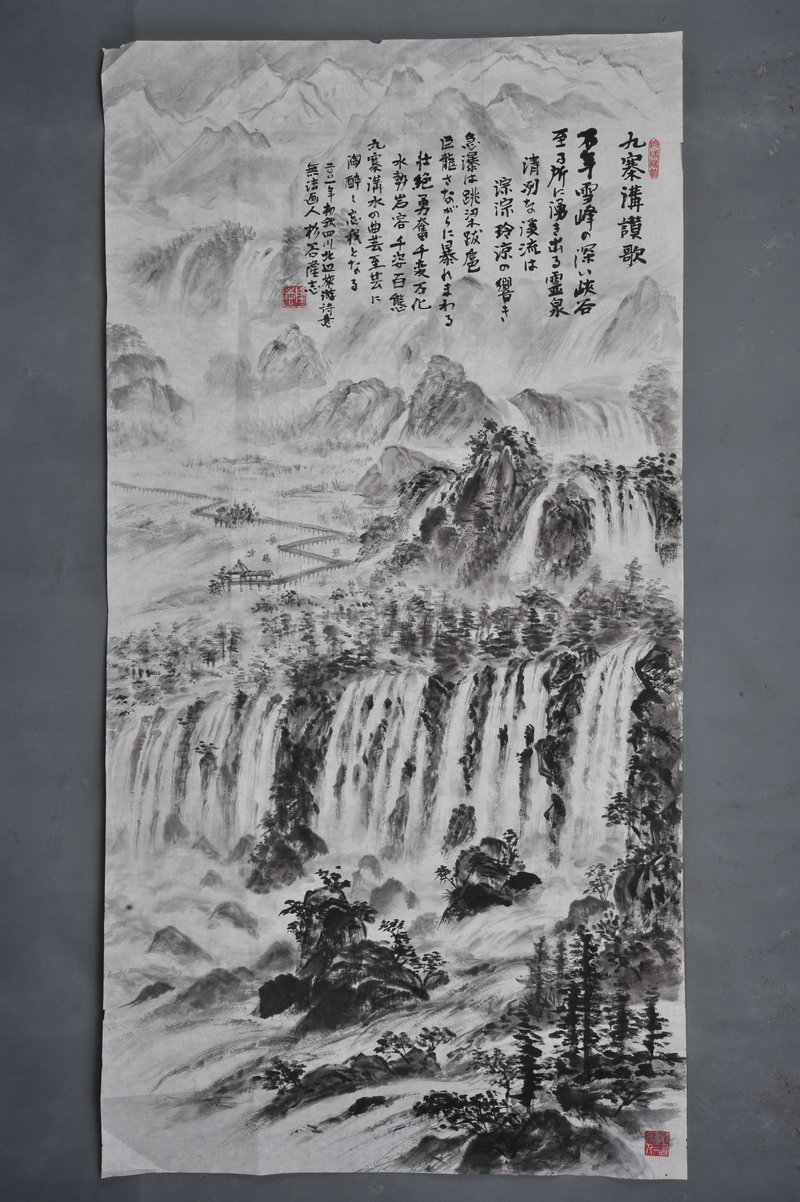 九寨溝讃歌
万年雪峰の深い峡谷
至る所に湧き出る霊泉
清冽な溪流は
淙淙玲凉の響き
急瀑は跳梁跋扈
巨龍さながらに暴れまわる
壮絶勇奮千変万化
水勢岩容千姿百態
九寨溝水の曲芸至芸に
陶酔し忘我となる
二〇一一年初秋四川北辺旅游詩意
無法画人 杉谷隆志